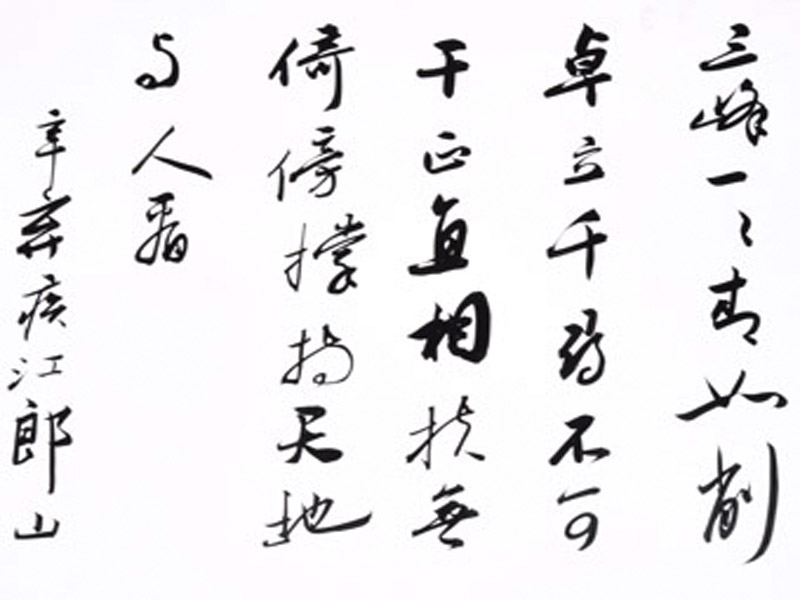 三峰一〻青如削
卓立千尋不可
干正直相扶無
倚傍撑持天地
与人看
辛弃疾江郎山